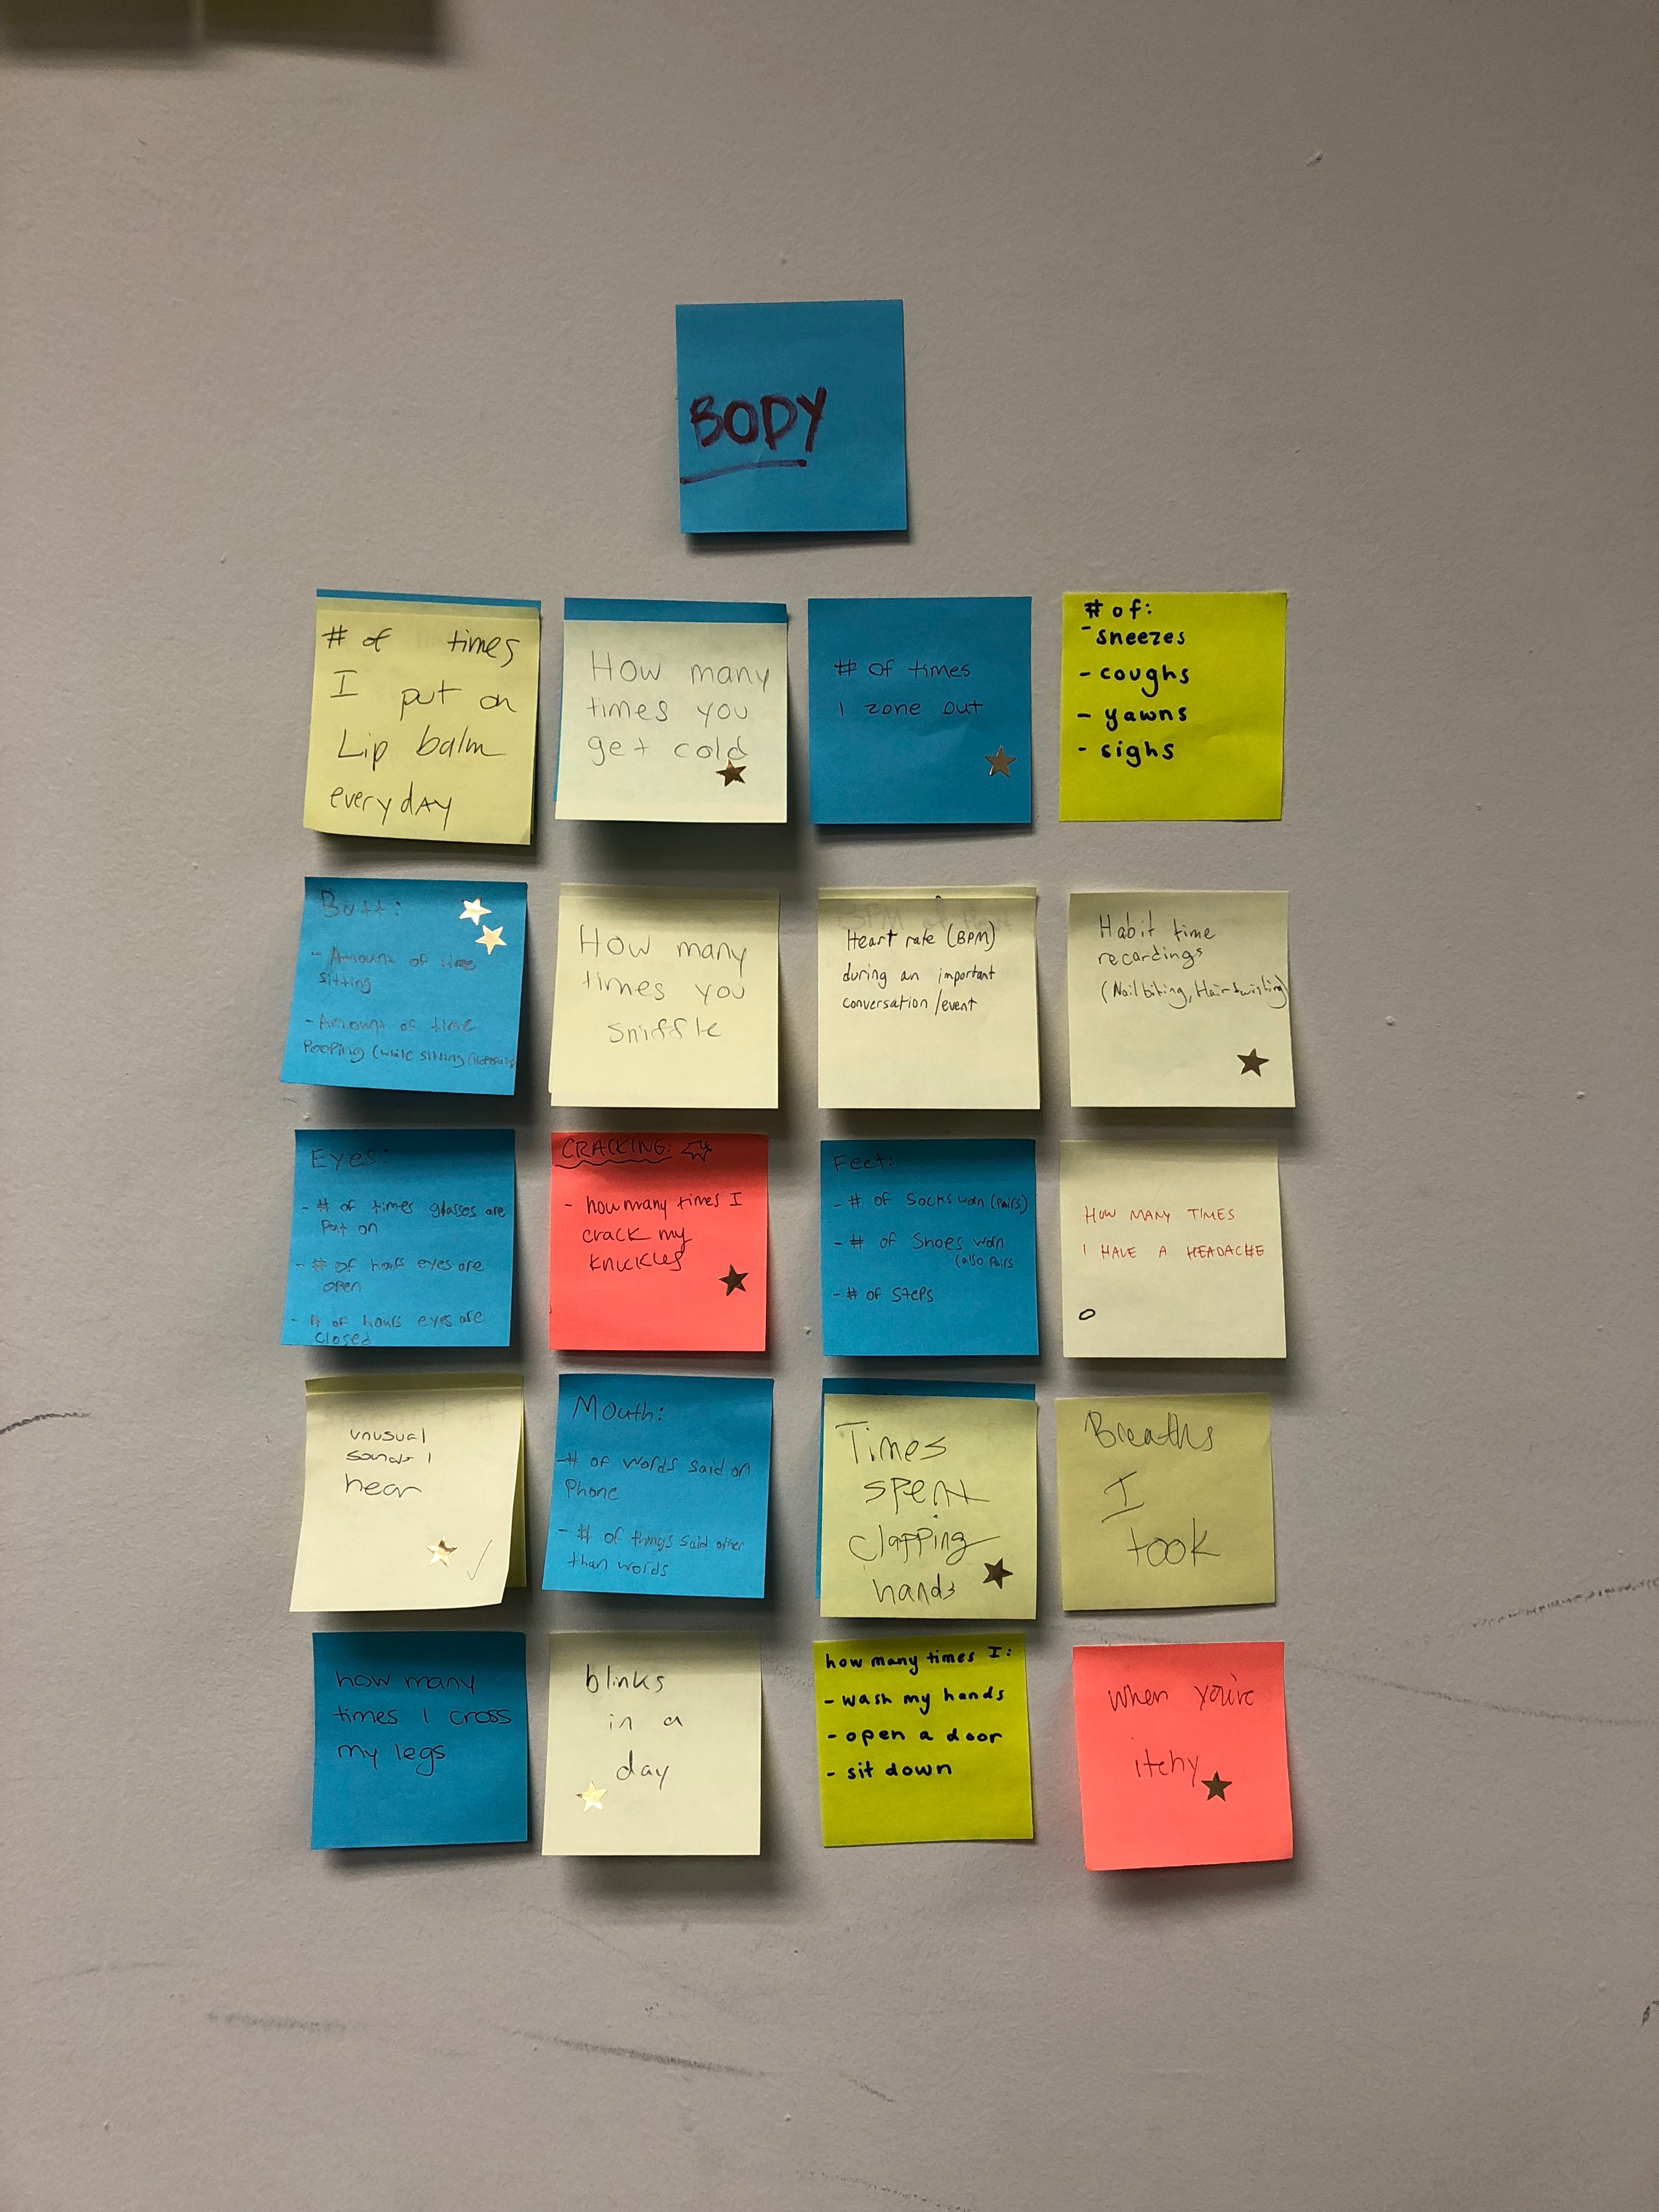 BODY
# of times
I put on
Lip balm
everydAy
How many
times you
get cold
# of times
I zone out
# of:
- sneezes
- coughs
- yawns
- sighs
Butt:
- Amount of time
sitting
- Amount of time
Pooping (while sitting
How many
times you
sniffle
Heart rate (BPM)
during an important
conversation/event
Habit time
recordings
(Nail biting, Hair twisting)
Eyes:
- # of times glasses are
Put on
- # of hours eyes are
open
- # of hours eyes are
closed
CRACKING:
- how many times I
crack my
knuckles
Feet:
- # of Socks worn (Pairs)
- # of Shoes worn
(also Pairs
- # of Steps
HOW MANY TIMES
I HAVE A HEADACHE
unusual
sounds I
hear
Mouth:
- # of words said on
Phone
- # of things said other
than words
Times
spent
clapping
hands
Breaths
I
took
how many
times I cross
my legs
blinks
in a
day
how many times I:
- wash my hands
- open a door
- sit down
when you're
itchy